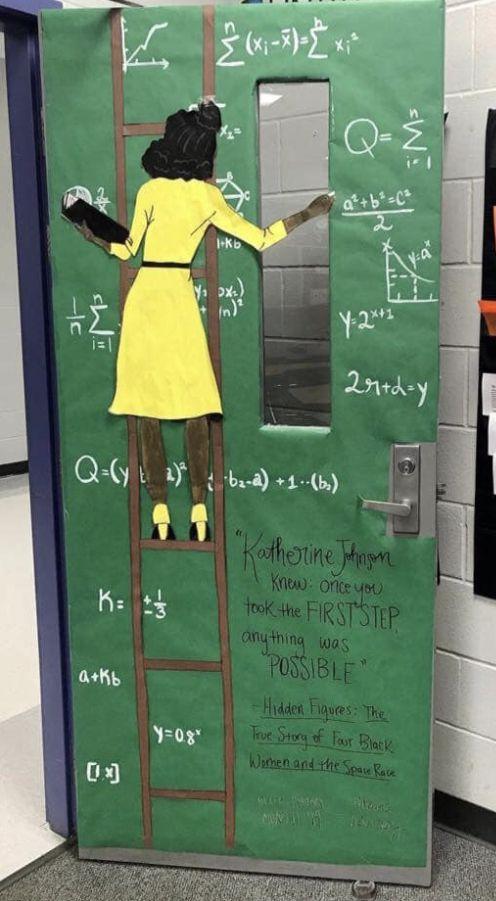 n
∑ (xᵢ-x̄)=∑ⁿ xᵢ²
x₂=
Q= ∑ⁿ
i=1
a²+b²=c²
2
2/x
B
C
1+Kb
x
y=aˣ
1/n ∑ⁿ
i=1
y=2ˣ⁺¹
2r+d=y
Q=(y
-b₂-a) +1··(b₂)
K= ±1/-3
a+Kb
y=0.8ˣ
[1,x]
"Katherine Johnson
Knew: once you
took the FIRST STEP,
anything was
POSSIBLE"
-Hidden Figures: The
True Story of Four Black
Women and the Space Race